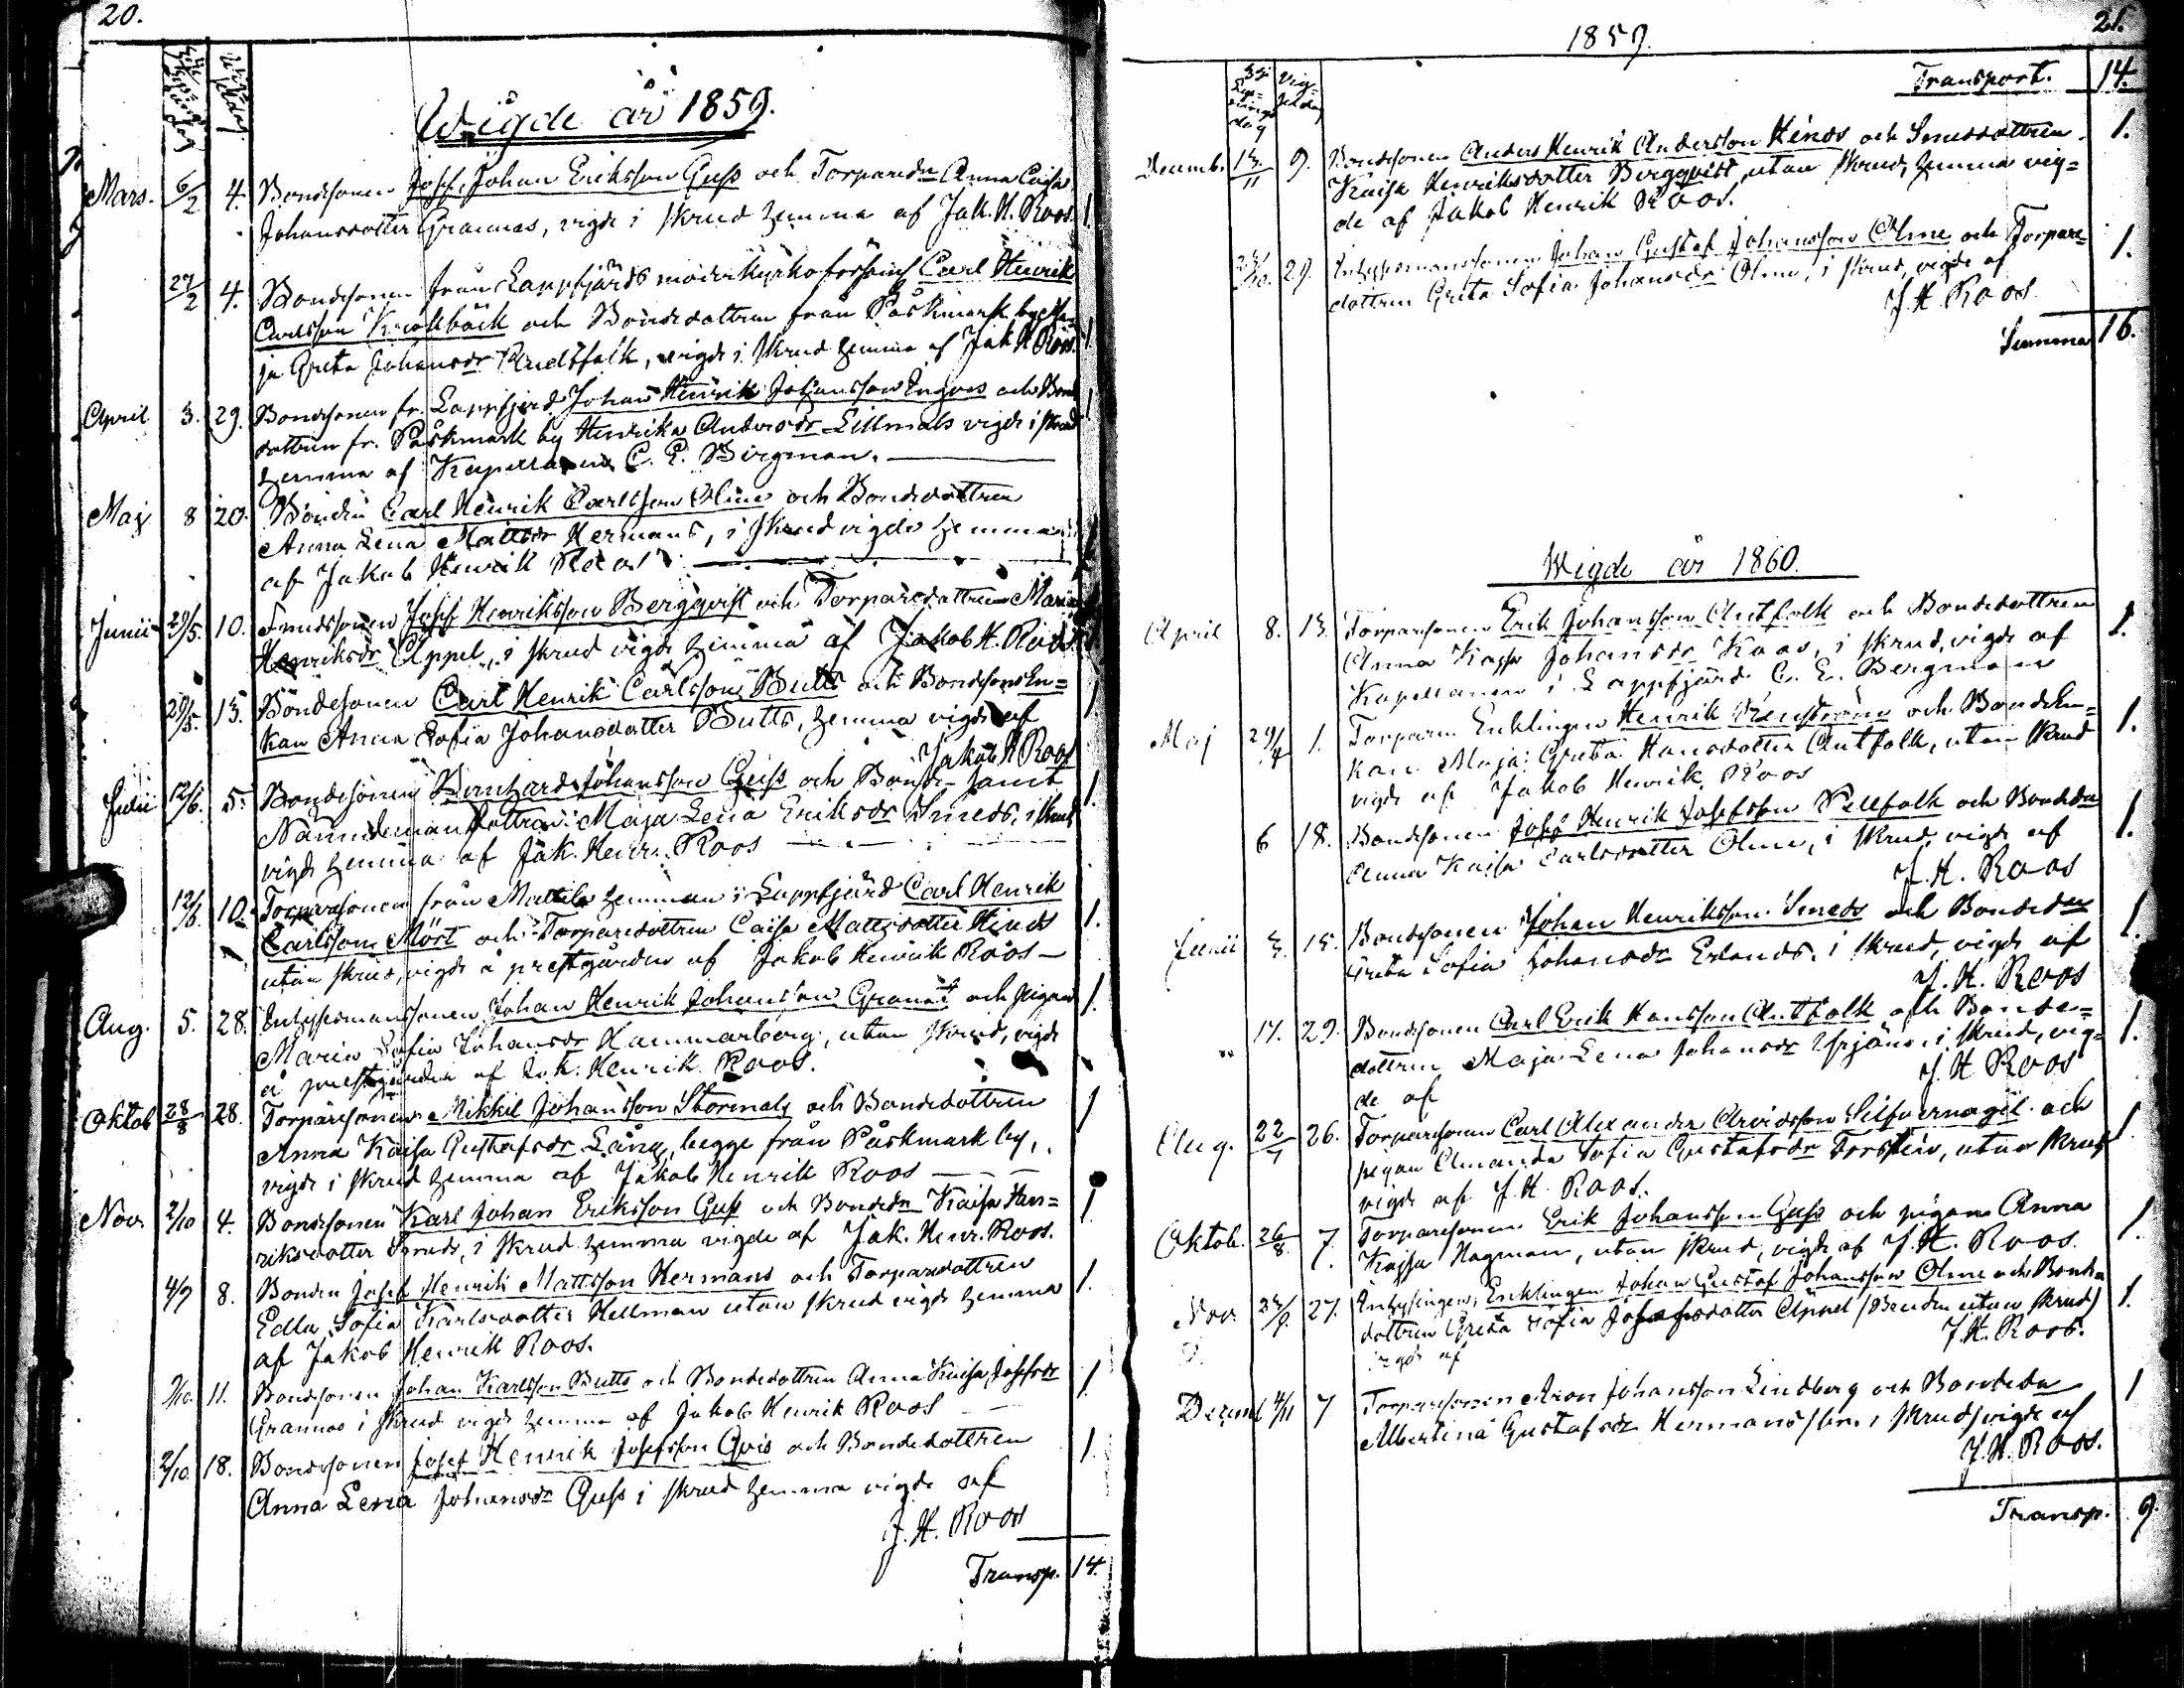 20.
Wigde år 1859.
Mars. 6/2 4. Bondesonen Josef Johan Eriksson Guss och Torparedn Anna Caisa
Johansdotter Grannas, vigde i skrud hemma af Jak. H. Roos. 1
27/2 4. Bondesonen från Lappfjärds moderkyrkoförsaml Carl Henrik
Carlsson Krookbäck och Bondedottren från Påskmark by
Greta Johansdr Rudsfolk, vigde i skrud hemma af Jak H Roos. 1
April 3. 29. Bondesonen fr. Lappfjerd Johan Henrik Johansson Engros och Bonde
dottren fr. Påskmark by Henrika Andersdr Lillmåls vigde i skrud 1
hemma af Kapellanen C. E. Bergman.
Maj 8 20. Bonden Carl Henrik Carlsson Olme och Bondedottren
Anna Lena Mattsdr Hermans, i skrud vigde hemma
af Jakob Henrik Roos
Junii 29/5. 10. Smedssonen Josef Henriksson Bergqvist och Torparedottren Maria
Henriksdr Appel, i skrud vigde hemma af Jakob H. Roos
29/5. 13. Bondesonen Carl Henrik Carlsson Butts och BondesonsEn=
kan Anna Sofia Johansdotter Butts, hemma vigde af 1
Jakob H Roos
Julii 12/6. 5. Bondesonen Bernhard Johansson Guss och Bonde-samt
Nämndemansdottren Maja Lena Eriksdr Smeds, i skrud 1.
vigde hemma af Jak. Henr. Roos
12/6. 10. Torparesonen från hemman i Lappfjärd Carl Henrik
Carlsson Mört och Torparedottren Caisa Mattsdotter Hinds 1.
utan skrud, vigde å prestgården af Jakob Henrik Roos
Aug. 5. 28. Inhysesmanssonen Johan Henrik Johansson Granqt och pigan 1.
Maria Sofia Johansdr Hammarberg, utan skrud, vigde
å prestgården af Jak. Henrik Roos.
Oktob 28/8 28. Torparesonen Mikkel Johansson Stormåls och Bondedottren 1
Anna Kaisa Gustafsdr Lång, begge från Påskmark by,
vigde i skrud hemma af Jakob Henrik Roos
Nov. 2/10 4. Bondesonen Karl Johan Eriksson Guss och Bondedn Kaisa Hen= 1.
riksdotter Smeds, i skrud hemma vigde af Jak. Henr. Roos.
4/9 8. Bonden Josef Henrik Mattsson Hermans och Torparedottren
Edla Sofia Karlsdotter Hellman utan skrud vigde hemma 1.
af Jakob Henrik Roos.
9/10. 11. Bondesonen Johan Karlsson Butts och Bondedottren Anna Kaisa Josefsdr 1.
Grannas i skrud vigde hemma af Jakob Henrik Roos
2/10. 18. Bondesonen Josef Henrik Josefsson Qvis och Bondedottren 1.
Anna Lena Johansdr Guss i skrud hemma vigde af
J. H. Roos
Transp. 14.
1859.
21.
Transport. 14.
Decemb. 13./11 9. Bondesonen Anders Henrik Andersson Hinds och Smedsdottren 1.
Kaisa Henriksdotter Bergqvist, utan skrud, hemma vig=
de af Jakob Henrik Roos.
23/10. 29. Inhysesmanssonen Johan Gustaf Johansson Olme och Torpare= 1.
dottren Greta Sofia Johansdr Olme, i skrud, vigde af
J. H Roos
Summa 16.
Wigde år 1860.
April 8. 13. Torparesonen Erik Johansson Antfolk och Bondedottren 1.
Anna Kajsa Johansdr Kaas, i skrud, vigde af
Kapellanen i Lappfjärd C. E. Bergman
Maj 29/4 1. Torparen Enklingen Henrik Renström och BondeEn= 1.
kan Maja Greta Hansdotter Antfolk, utan skrud
vigde af Jakob Henrik Roos
6 18. Bondesonen Josef Henrik Josefsson Pellfolk och Bondedn 1.
Anna Kaisa Carlsdotter Olme, i skrud, vigde af
J. H. Roos
Junii 3. 15. Bondesonen Johan Henriksson Smeds och Bondedn 1.
Greta Sofia Johansdr Erlands, i skrud, vigde af
J. H. Roos
17. 29. Bondesonen Carl Erik Hansson Antfolk och Bonde= 1.
dottren Maja Lena Johansdr i skrud, vig=
de af J. H Roos
Aug. 22/7 26. Torparesonen Carl Alexander Arvidsson Silfvernagel och 1
pigan Amanda Sofia Gustafsdr Forsten, utan skrud
vigde af J. H. Roos.
Oktob. 26/8. 7. Torparesonen Erik Johansson Guss och pigan Anna 1.
Kajsa Hagman, utan skrud, vigde af J. H. Roos.
Nov. 23/9. 27. Inhysingen, Enklingen Johan Gustaf Johansson Olme och Bonde= 1.
dottren Greta Sofia Josefsdotter Appel /Bruden utan skrud/
vigde af J. H. Roos.
Decemb 4/11 7 Torparesonen Aron Johansson Lindberg och Bondedn 1
Albertina Gustafsdr Hermans i skrud, vigde af
J. H. Roos.
Transp. 9.